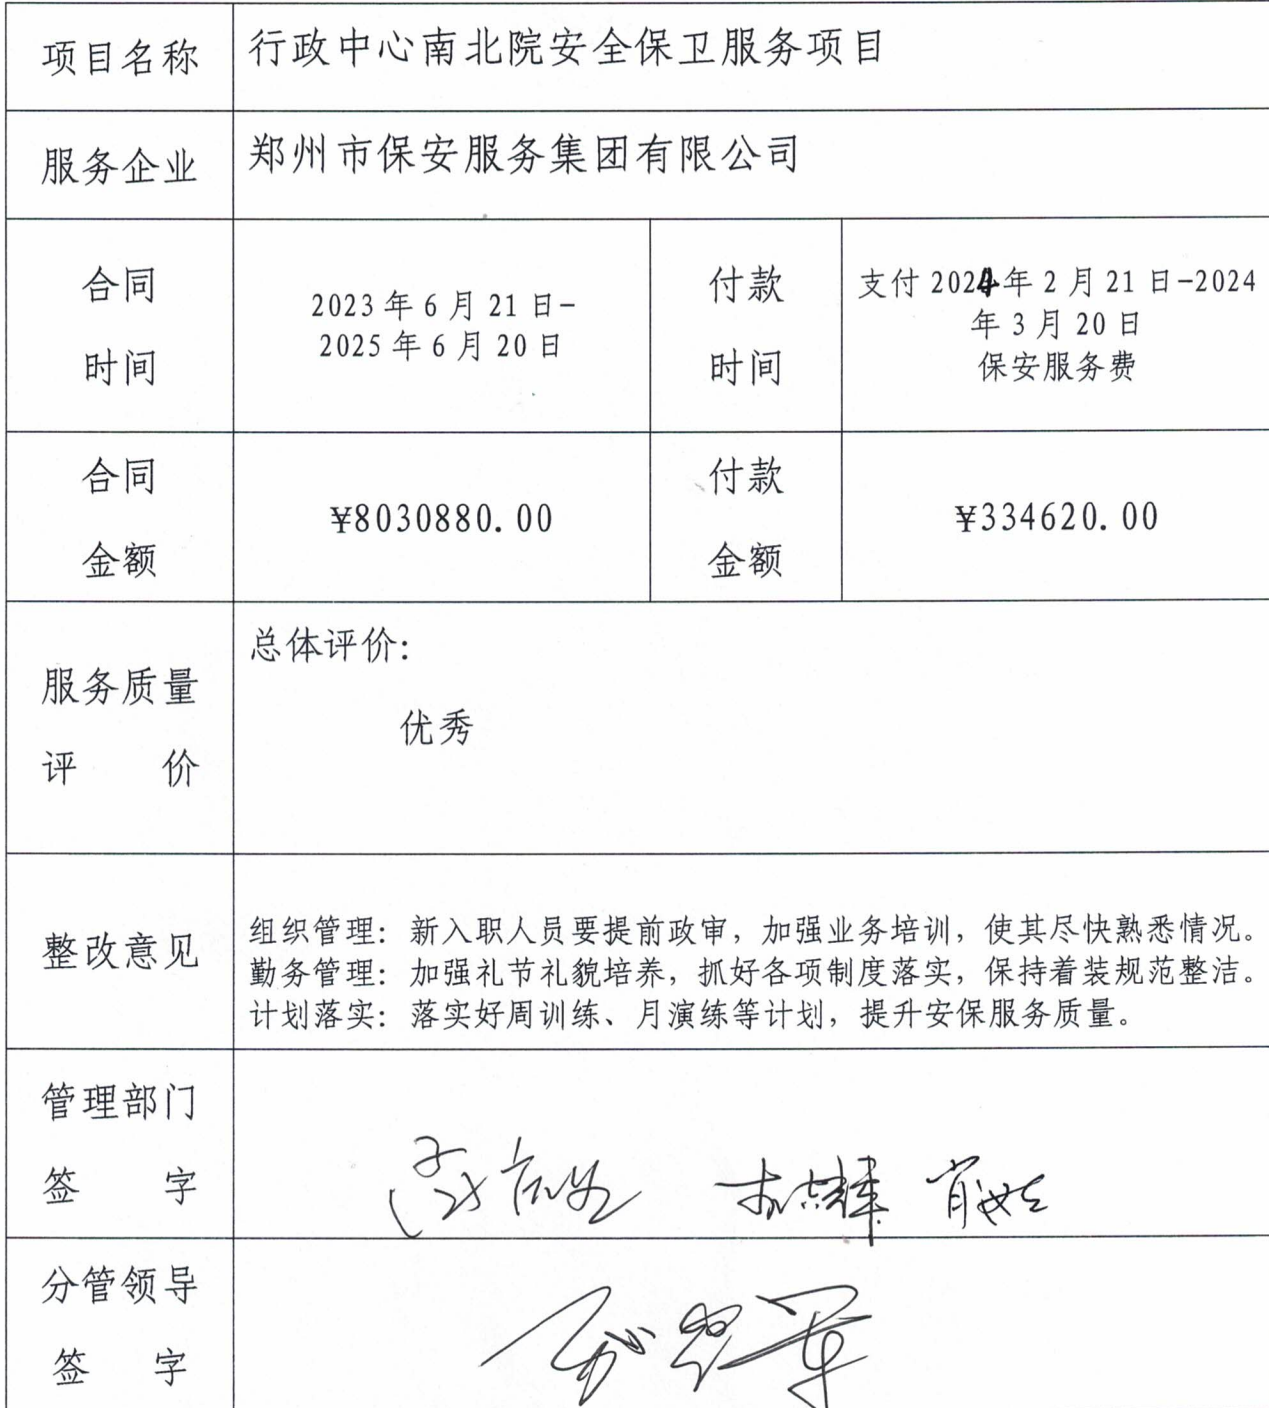 项目名称
行政中心南北院安全保卫服务项目
服务企业
郑州市保安服务集团有限公司
合同
时间
2023年6月21日-
2025年6月20日
付款
时间
支付2024年2月21日-2024
年3月20日
保安服务费
合同
金额
¥8030880.00
付款
金额
¥334620.00
服务质量
评 价
总体评价:
优秀
整改意见
组织管理:新入职人员要提前政审,加强业务培训,使其尽快熟悉情况。
勤务管理:加强礼节礼貌培养,抓好各项制度落实,保持着装规范整洁。
计划落实:落实好周训练、月演练等计划,提升安保服务质量。
管理部门
签 字
分管领导
签 字